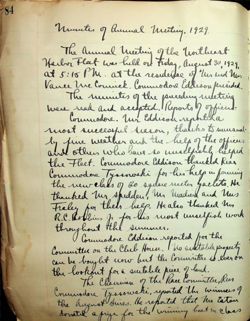 84
Minutes of Annual Meeting, 1929
The Annual Meeting of the Northeast
Harbor Fleet was held on Friday, August 30, 1929,
at 5:15 P.M. at the residence of Mr and Mrs
Vance McCormick. Commodore Eddison presided.
The minutes of the preceding meeting
were read and accepted. Reports of officers.
Commodore. Mr Eddison reported a
most successful season, thanks to
by fine weather and the help of the officers
and others who have so unselfishly helped
the Fleet. Commodore Eddison thanked Rear
Commodore Tyssowski for his help in forming
the new class of 30 square meter yachts. He
thanked Mr. Spedden, Mr Madeira and Mrs
for their help. He also thanked Mr
R.C. Robbins Jr for his most unselfish work
throughout the summer.
Commodore Eddison reported for the
Committee on the Club House. No suitable property
can be bought now but the Committee is ever on
the lookout for a suitable piece of land.
The Chairman of the Race Committee, Rear
Commodore Tyssowski, reported the winners of
the August Series. He reported that Mr Eaton
donated a prize for the winning boat in Class